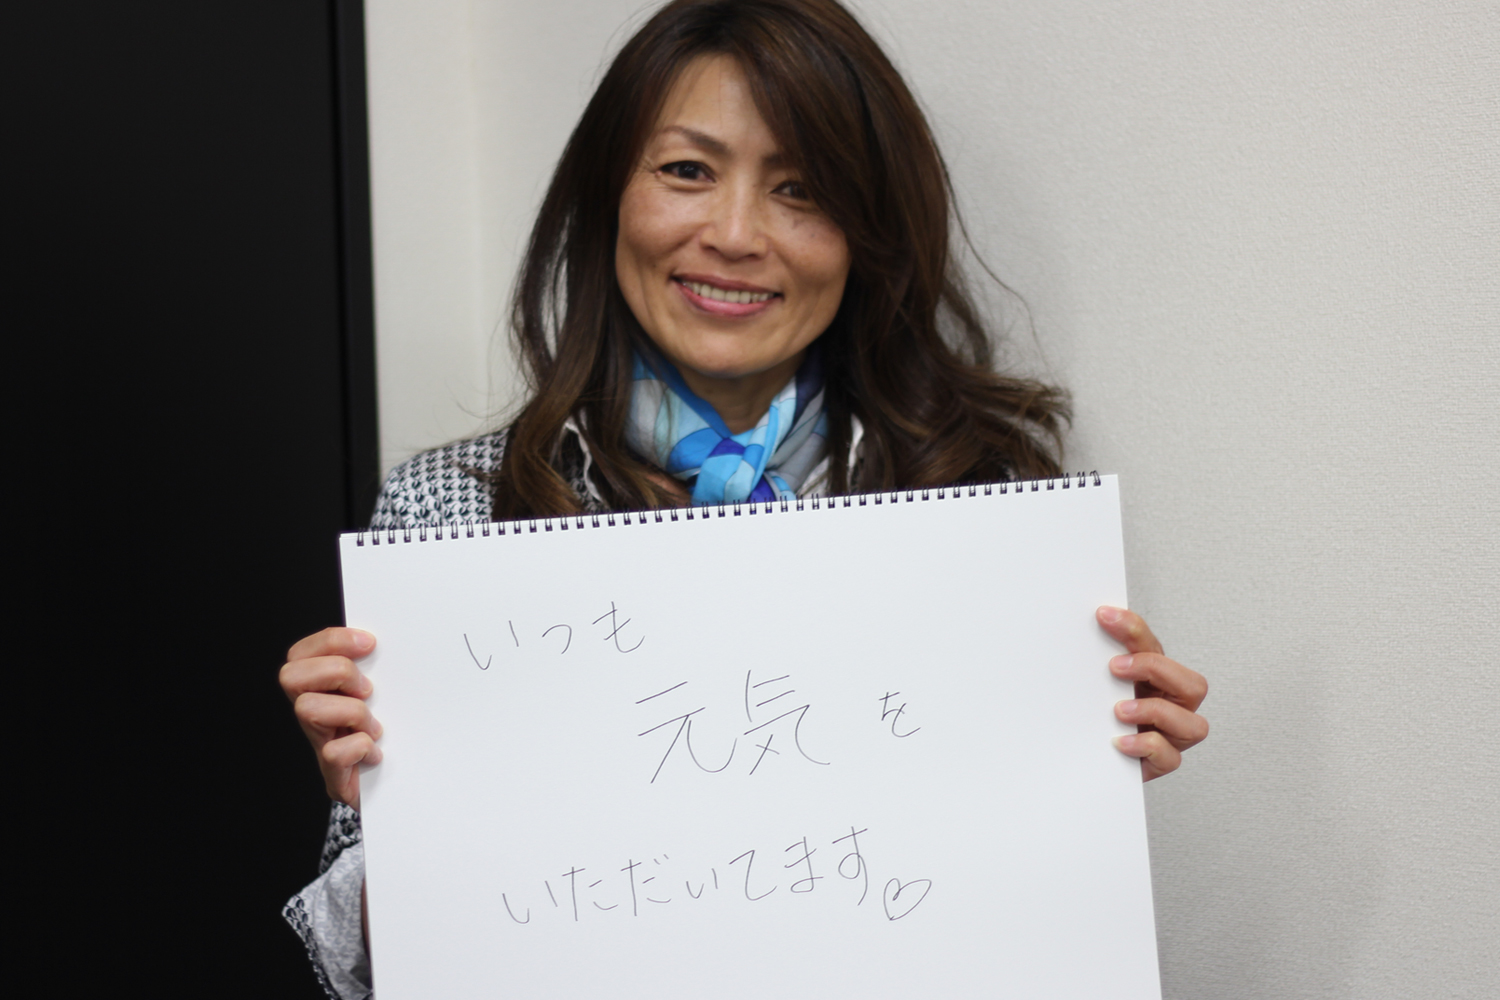 いつも
元気を
いただいてます♡